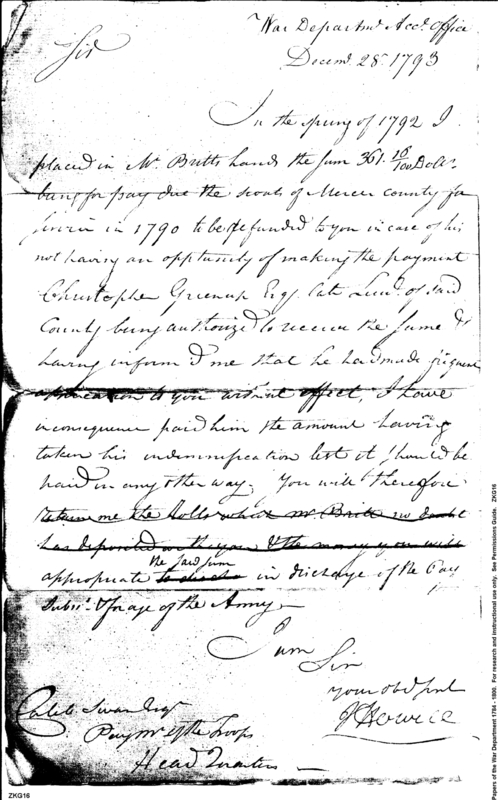 War Departmt Acct. Office
Decemr. 28th. 1793
Sir
In the spring of 1792 I
placed in Mr. Britts hands the sum 361. 16/100 Dolls.
being for pay due the scouts of Mercer county for
service in 1790 to be refunded to you in case of his
not having an opptunity of making the payment
Christopher Greenup Esq. late Lieut. of said
County being authorized to receive the same &
having inform'd me that he had made frequent
application to you without effect, I have
in consequence paid him the amount having
taken his indemnification lest it should be
paid in any other way. You will therefore
return me the Dolls which Mr Britt no doubt
has deposited with you & the money you will
the said sum
appropriate in discharge of the Pay
Subst. & forage of the Army
I am
Sir
your obd Servt
J Howell
Caleb Swan Esqr
Paymr of the Troops
Head Quarters
ZKG16
Papers of the War Department 1784 - 1800. For research and instructional use only. See Permissions Guide. ZKG16